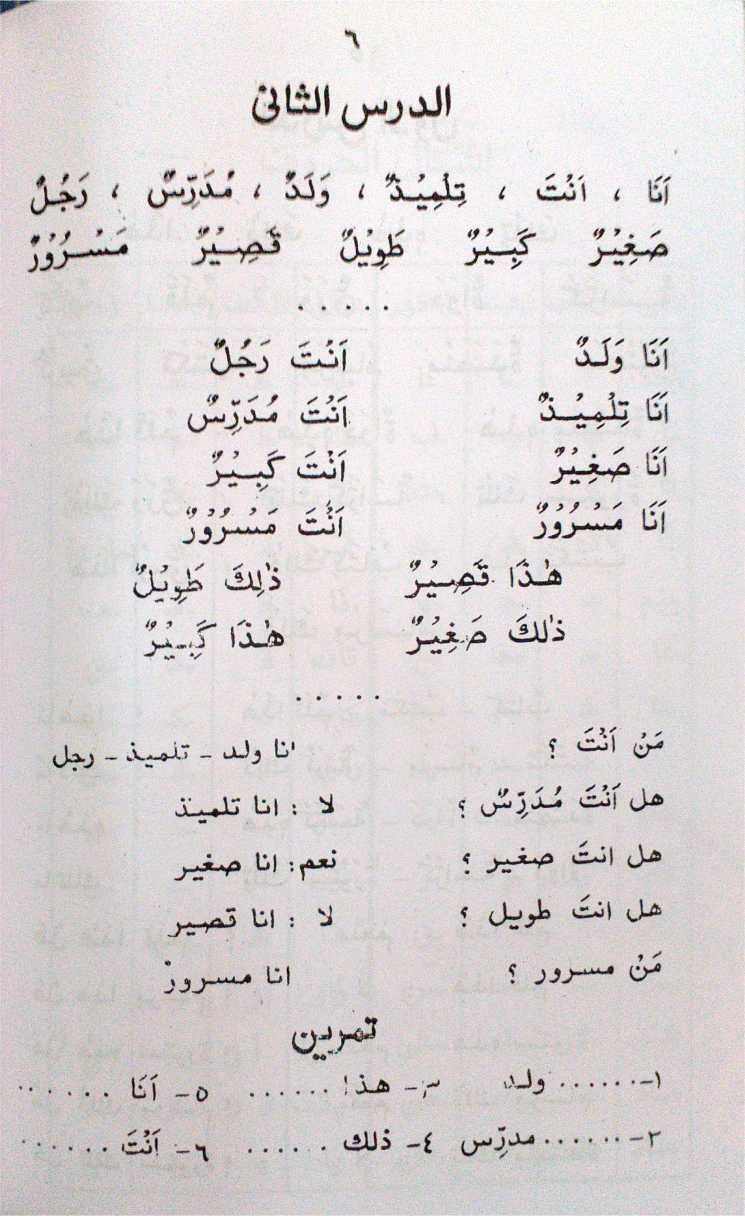 ٦
الدرس الثانى
اَنَا ، اَنْتَ ، تِلْمِيْذٌ ، وَلَدٌ ، مُدَرِّسٌ ، رَجُلٌ
صَغِيْرٌ كَبِيْرٌ طَوِيْلٌ قَصِيْرٌ مَسْرُوْرٌ
. . . .
اَنَا وَلَدٌ اَنْتَ رَجُلٌ
اَنَا تِلْمِيْذٌ اَنْتَ مُدَرِّسٌ
اَنَا صَغِيْرٌ اَنْتَ كَبِيْرٌ
اَنَا مَسْرُوْرٌ اَنْتَ مَسْرُوْرٌ
هٰذَا قَصِيْرٌ ذٰلِكَ طَوِيْلٌ
ذٰلِكَ صَغِيْرٌ هٰذَا كَبِيْرٌ
. . . . .
مَنْ اَنْتَ ؟ انا ولد - تلميذ - رجل
هل اَنْتَ مُدَرِّسٌ ؟ لا : انا تلميذ
هل انتَ صغير ؟ نعم : انا صغير
هل انتَ طويل ؟ لا : انا قصير
مَنْ مسرور ؟ انا مسرورْ
تمرين
١- ...... ولد ٣- هذا ...... ٥- اَنَا ......
٢- ...... مدرِّس ٤- ذلك ...... ٦- اَنْتَ ......